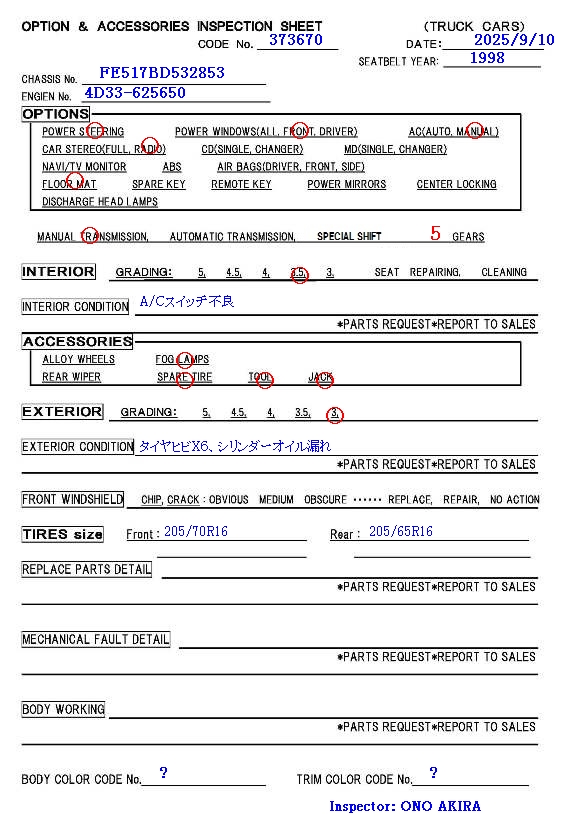 OPTION & ACCESSORIES INSPECTION SHEET (TRUCK CARS)
CODE No. 373670 DATE: 2025/9/10
SEATBELT YEAR: 1998
CHASSIS No. FE517BD532853
ENGIEN No. 4D33-625650
OPTIONS
POWER STEERING POWER WINDOWS(ALL, FRONT, DRIVER) AC(AUTO, MANUAL)
CAR STEREO(FULL, RADIO) CD(SINGLE, CHANGER) MD(SINGLE, CHANGER)
NAVI/TV MONITOR ABS AIR BAGS(DRIVER, FRONT, SIDE)
FLOOR MAT SPARE KEY REMOTE KEY POWER MIRRORS CENTER LOCKING
DISCHARGE HEAD LAMPS
MANUAL TRANSMISSION, AUTOMATIC TRANSMISSION, SPECIAL SHIFT 5 GEARS
INTERIOR GRADING: 5, 4.5, 4, 3.5, 3, SEAT REPAIRING, CLEANING
INTERIOR CONDITION A/Cスイッチ不良
*PARTS REQUEST*REPORT TO SALES
ACCESSORIES
ALLOY WHEELS FOG LAMPS
REAR WIPER SPARE TIRE TOOL JACK
EXTERIOR GRADING: 5, 4.5, 4, 3.5, 3,
EXTERIOR CONDITION タイヤヒビX6、シリンダーオイル漏れ
*PARTS REQUEST*REPORT TO SALES
FRONT WINDSHIELD CHIP, CRACK : OBVIOUS MEDIUM OBSCURE ······ REPLACE, REPAIR, NO ACTION
TIRES size Front : 205/70R16 Rear : 205/65R16
REPLACE PARTS DETAIL
*PARTS REQUEST*REPORT TO SALES
MECHANICAL FAULT DETAIL
*PARTS REQUEST*REPORT TO SALES
BODY WORKING
*PARTS REQUEST*REPORT TO SALES
BODY COLOR CODE No. ? TRIM COLOR CODE No. ?
Inspector: ONO AKIRA